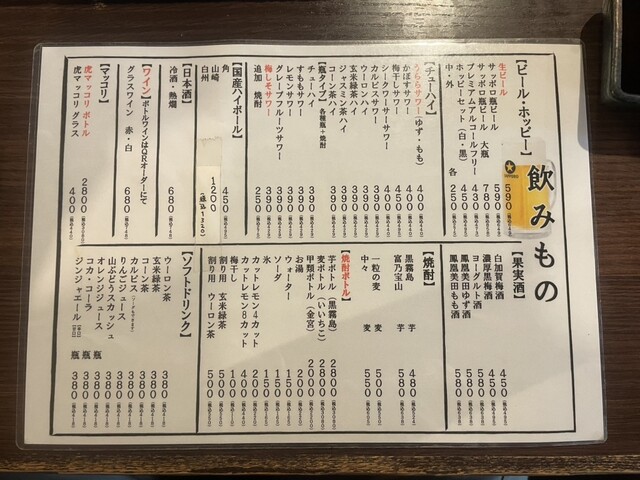 飲みもの
【ビール・ホッピー】
生ビール 590
サッポロ瓶ビール 590
サッポロ瓶ビール 大瓶 790
プレミアムアルコールフリー 430
ホッピーセット（白・黒） 450
中・外 各 250
【チューハイ】
うららサワー（ゆず・もも） 400
かぼすサワー 400
梅干しサワー 400
シークワーサーサワー 400
カルピスサワー 390
ウーロンハイ 390
玄米緑茶ハイ 390
ジャスミン茶ハイ 390
コーン茶ハイ 390
【瓶タイプ】各種瓶＋焼酎
チューハイ 390
すももサワー 390
レモンサワー 390
グレープフルーツサワー 390
梅しそサワー 390
追加 焼酎 250
【国産ハイボール】
角 450
山崎
白州 1200
(税込1320)
【日本酒】
冷酒・熱燗 680
【ワイン】ボトルワインはQRオーダーにて
グラスワイン 赤・白 680
【マッコリ】
虎マッコリ ボトル 2800
虎マッコリ グラス 400
【果実酒】
白加賀梅酒 450
濃厚黒梅酒 450
ヨーグルト酒 450
鳳凰美田ゆず酒 580
鳳凰美田もも酒 580
【焼酎】
黒霧島 芋 480
富乃宝山 芋 580
一粒の麦 麦 500
中々 麦 550
【焼酎ボトル】
芋ボトル（黒霧島） 2800
麦ボトル（いいちこ） 2800
甲類ボトル（金宮） 2000
お湯 200
ウォーター 150
ソーダ 200
氷 150
カットレモン4カット 200
カットレモン8カット 400
梅干し 100
割り用 玄米緑茶 500
割り用 ウーロン茶 500
【ソフトドリンク】
ウーロン茶 380
玄米緑茶 380
コーン茶 380
カルピス 380
りんごジュース 380
山ぶどうスカッシュ 380
オレンジジュース 瓶 380
コカ・コーラ 瓶 380
ジンジャエール 瓶 380